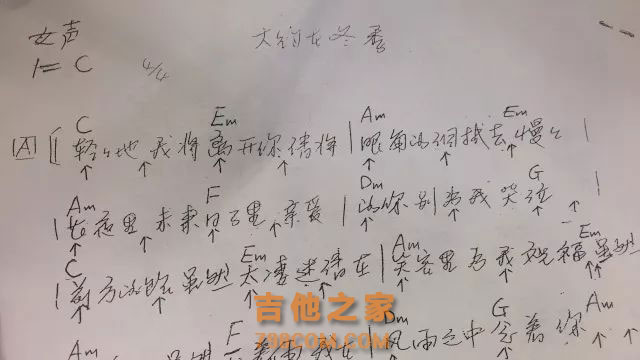 女声 大约在冬季
1=C 4/4
C Em Am Em
A 轻轻地我将离开你请将 眼角的泪拭去慢慢
Am F Dm G
长夜里未来日子里亲爱 的你别为我哭泣
C Em Am Em
前方的路虽然太凄迷请在 笑容里为我祝福虽然
Am F Dm G Am
风雨之中念着你
吉他之家
798COM.COM